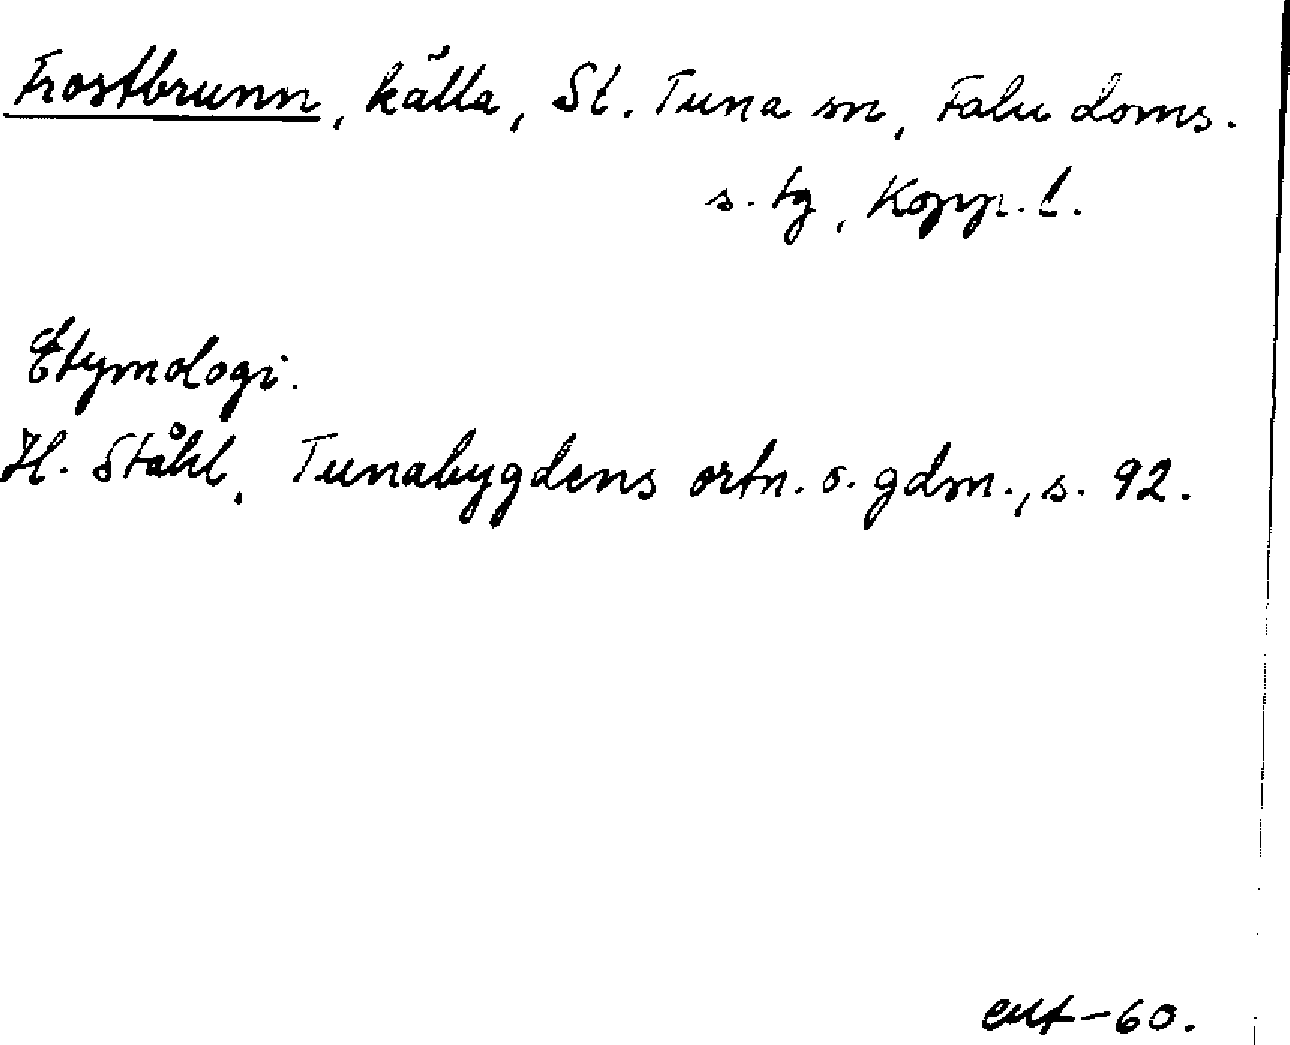 Frostbrunn, källa, St. Tuna sn, Falu doms.
s. tg, Kopp. l.
Etymologi.
H. Ståhl, Tunabygdens ortn. o. gdm., s. 92.
-60.